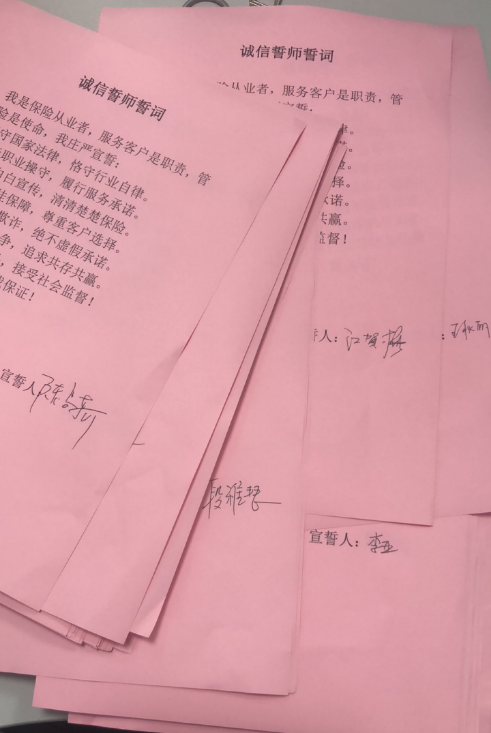 诚信誓师誓词
我是保险从业者，服务客户是职责，管
险是使命，我庄严宣誓：
守国家法律，恪守行业自律。
职业操守，履行服务承诺。
白白宣传，清清楚楚保险。
保障，尊重客户选择。
欺诈，绝不虚假承诺。
争，追求共存共赢。
，接受社会监督！
保证！
宣誓人
诚信誓师誓词
从业者，服务客户是职责，管
宣誓：
律。
险。
择。
承诺。
共赢。
监督！
人：江贺梅
：
段雅琴
宣誓人：李亚